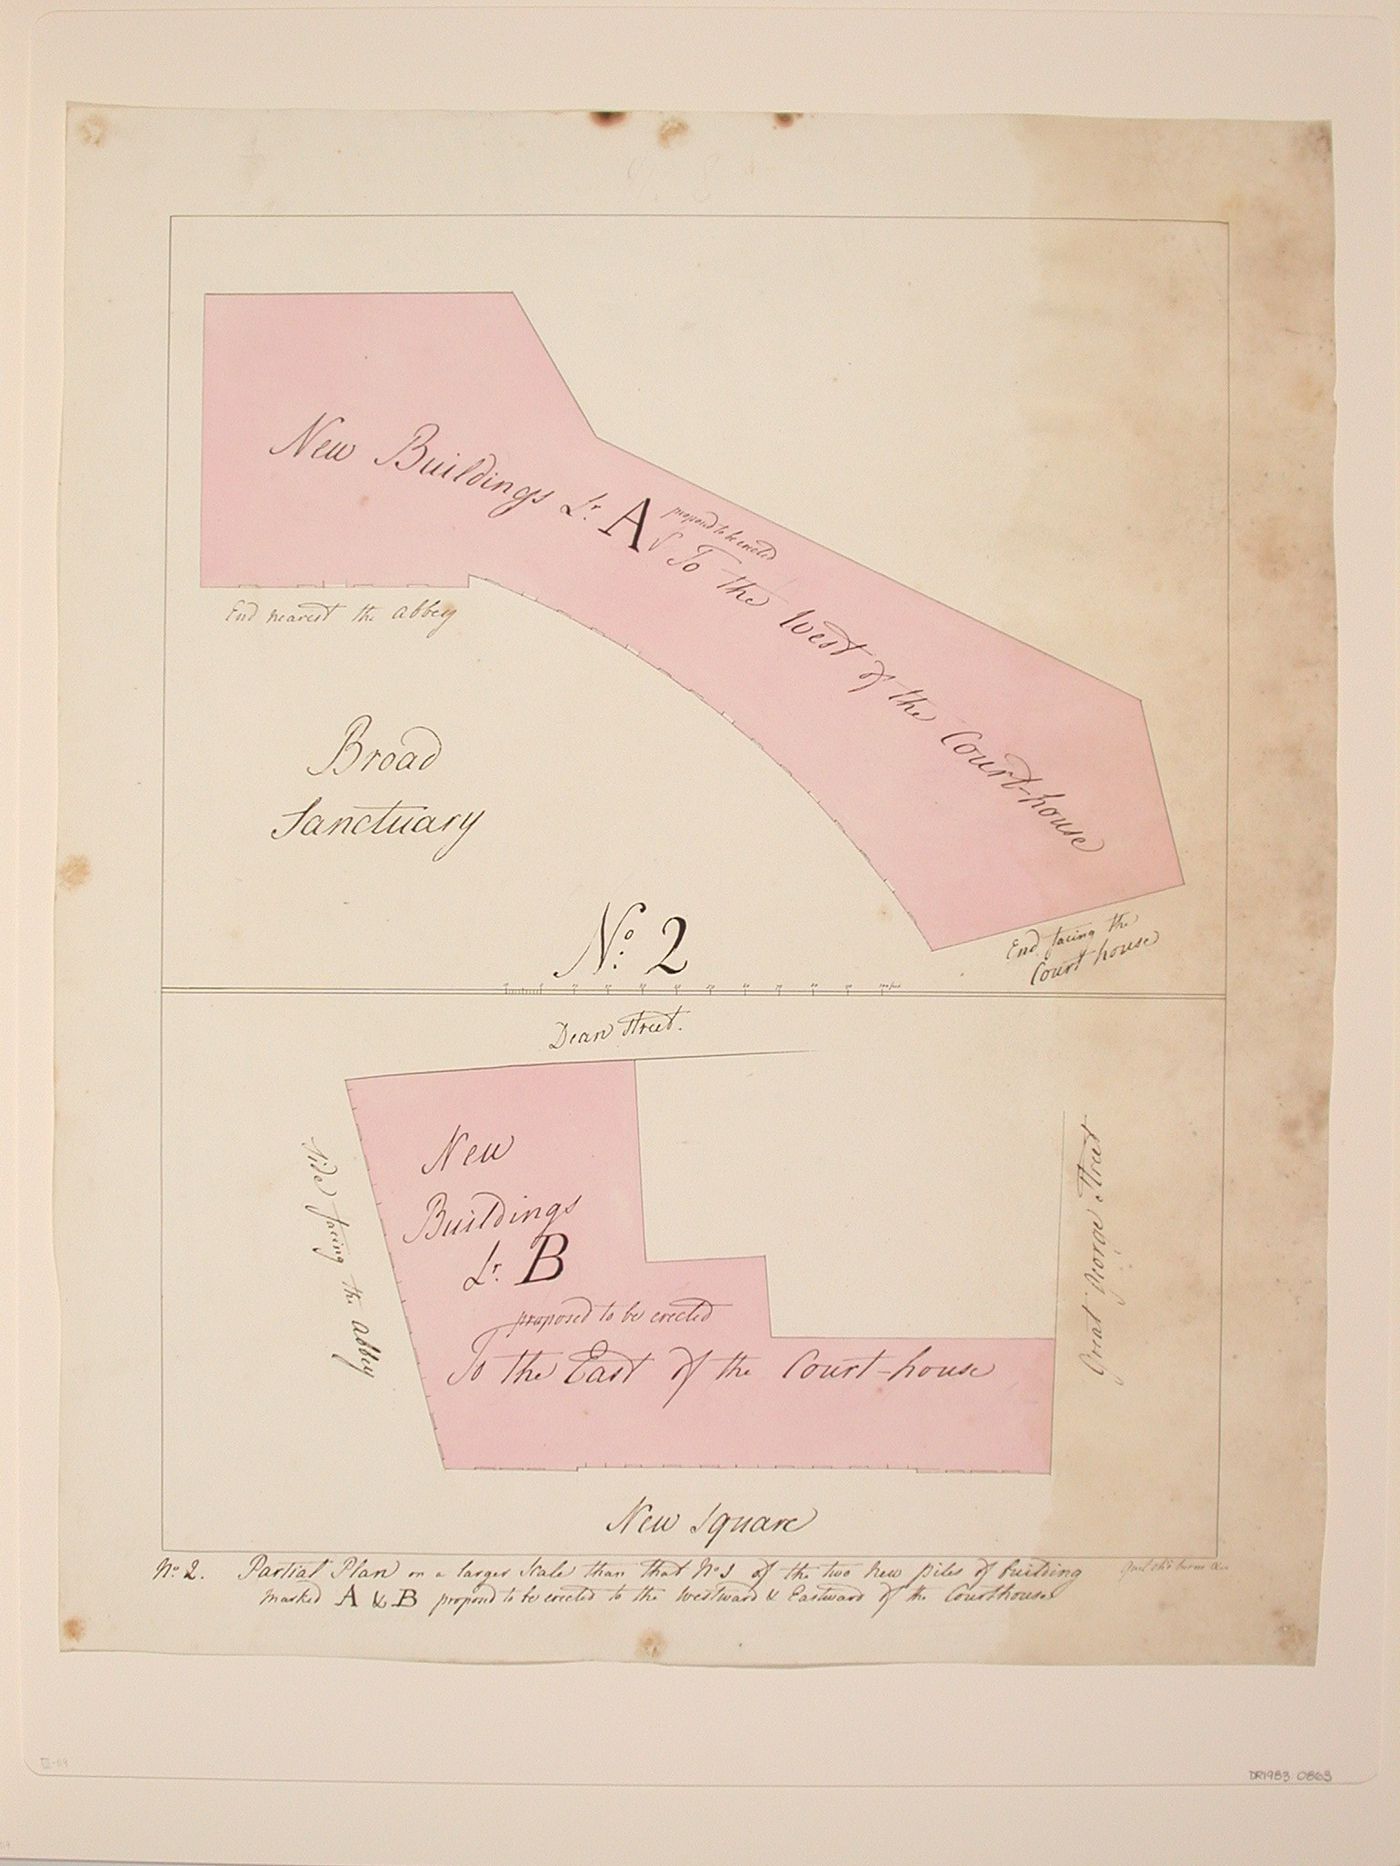 New Buildings Lr. A propos'd to be erected To the West of the Court-house
End nearest the Abbey
Broad
Sanctuary
End facing the
Court house
No. 2
Dean Street.
New
Buildings
Lr. B
proposed to be erected
To the East of the Court-house
Side facing the Abbey
Great George Street
New Square
No. 2. Partial Plan on a larger Scale than that No 1 of the two New piles of building
Marked A & B propos'd to be erected to the Westward & Eastward of the Courthouse
DR1983:0863